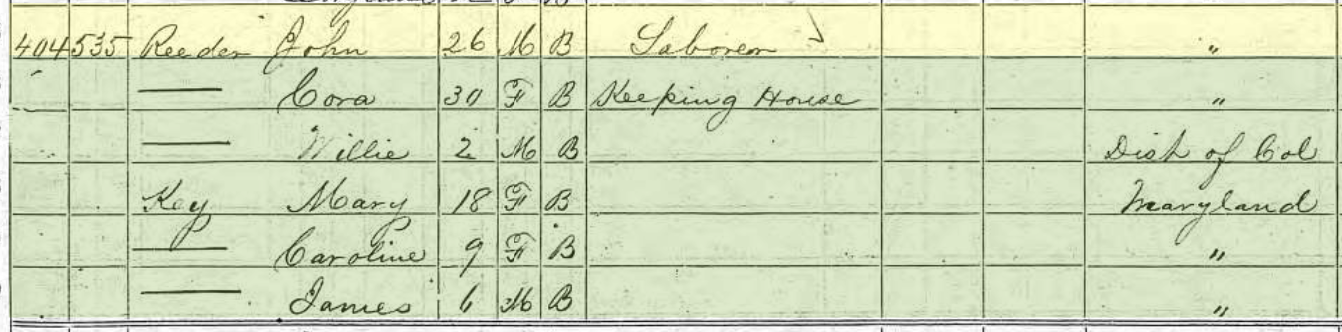 404 535 Reeder John 26 M B Laborer "
—— Cora 30 F B Keeping House "
—— Willie 2 M B Dist of Col
Key Mary 18 F B Maryland
—— Caroline 9 F B "
—— James 6 M B "